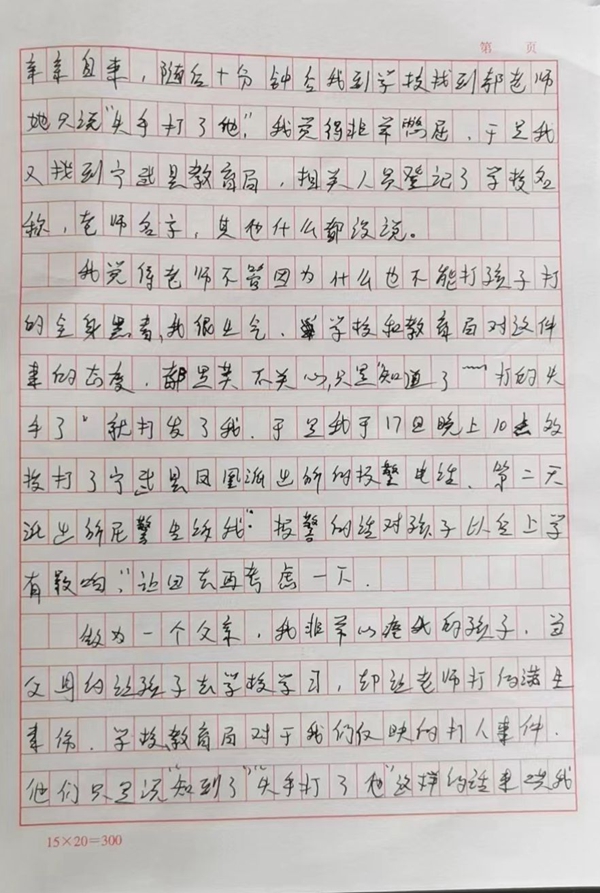 第 页
随后十分钟后我到学校找到郭老师
她只说"失手打了他"。我觉得非常憋屈，于是我
又找到宁武县教育局，相关人员登记了学校名
称，老师名字，其他什么都没说。
我觉得老师不管因为什么也不能打孩子打
的全身黑青，我很生气、学校和教育局对这件
事的态度，都是莫不关心，只是"知道了""打的失
手了"就打发了我。于是我于17日晚上10点
拨打了宁武县凤凰派出所的报警电话。第二天
派出所民警告诉我"报警的话对孩子以后上学
有影响"，让回去再考虑一下。
做为一个父亲，我非常心疼我的孩子，当
父母的让孩子去学校学习，却让老师打的满身
是伤。学校教育局对于我们反映的打人事件，
他们只是说"知到了""失手打了他"这样的话来哄我
15×20=300